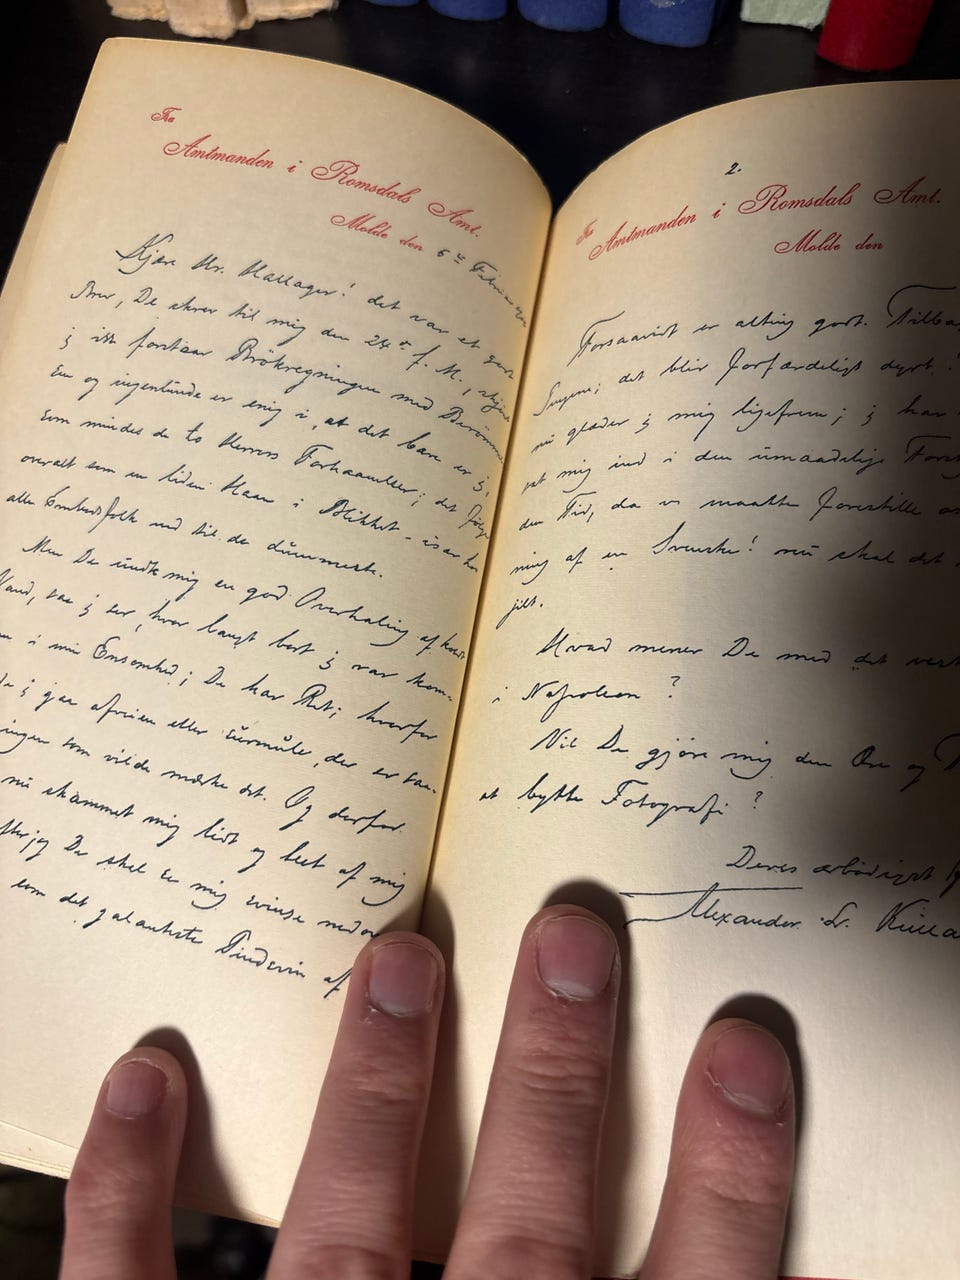 Fra
Amtmanden i Romsdals Amt.
Molde den 6te Februar
Kjære Hr. Hallager! det var et godt
Brev, De skrev til mig den 24de f. M.,
j ikke forstaar Brökregningen med Berömm
og ingenlunde er enig i, at det bare er j,
som mindes de to Herrers Forhaanelser; det
overalt som en liden Haan i Blikket – især hos
alle Embedsfolk ned til de dummeste.
Men De undte mig en god Overhaling af koldt
Vand, saa j ser, hvor langt bort j var kom-
i min Ensomhed; De har Ret; hvorfor
j gaa afveien eller surmule, der er saa-
ingen som vilde mærke det. Og derfor
nu skammet mig lidt og leet af mig
De skal se mig svinse nedover
som det galanteste Tindevin af
2.
Fra
Amtmanden i Romsdals Amt.
Molde den
Forsaavidt er alting godt.
det blir forfærdeligt dyrt.
nu glæder j mig ligefrem; j har
sat mig ind i den umaadelige
den Tid, da vi maatte forestille os
ning af en Svenske! nu skal det
gilt.
Hvad mener De med det
i Napoleon?
Vil De gjøre mig den Ære og
at bytte Fotografi?
Deres ærbødigst
Alexander L. Kiella